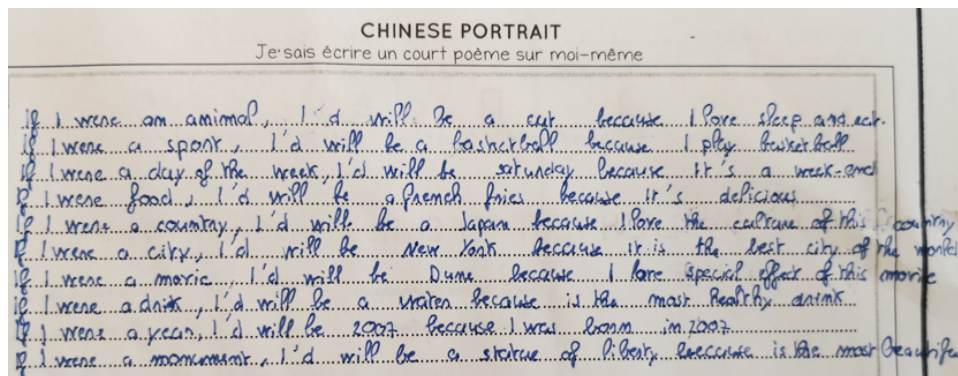 CHINESE PORTRAIT
Je sais écrire un court poème sur moi-même
If I were an animal, I'd will be a cat because I love sleep and eat.
If I were a sport, I'd will be a basketball because I play basketball
If I were a day of the week, I'd will be saturday because it's a week-end
If I were food, I'd will be a french fries because it's delicious
If I were a country, I'd will be a Japan because I love the culture of this country
If I were a city, I'd will be New York because it is the best city of the world
If I were a movie, I'd will be Dune because I love special effect of this movie
If I were a drink, I'd will be a water because is the most healthy drink
If I were a year, I'd will be 2007 because I was born in 2007
If I were a monument, I'd will be a statue of liberty because is the most